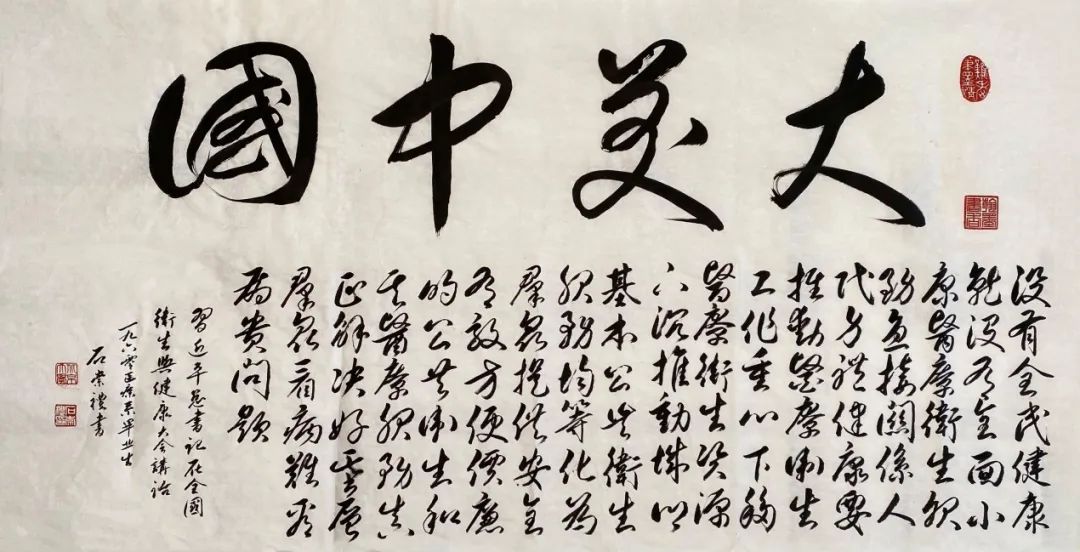 大美中國
没有全民健康
就没有全面小
康醫療衛生服
務直接關係人
民身體健康要
推動醫療衛生
工作重心下移
醫療衛生資源
下沉推動城鄉
基本公共衛生
服務均等化為
羣衆提供安全
有效方便價廉
的公共衛生和
醫療服務真
正解決好基層
羣衆看病難看
病貴問題
習近平總書記在全國
衛生與健康大會講話
一九六零系畢业生
石崇禮書